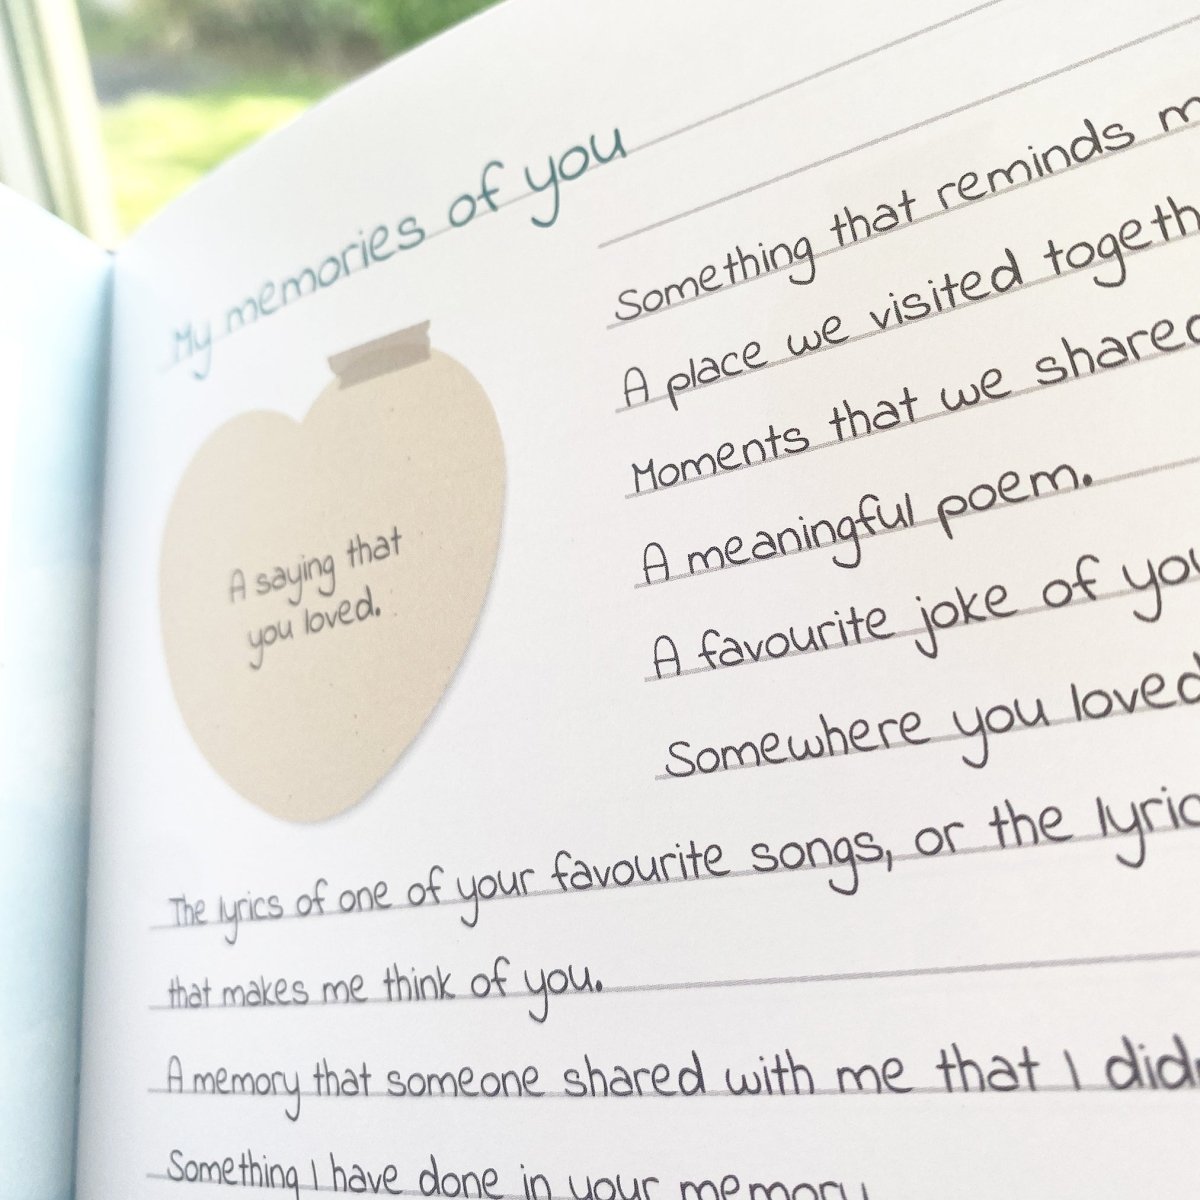 My memories of you
A saying that
you loved.
Something that reminds
A place we visited
Moments that we shared
A meaningful poem.
A favourite joke of
Somewhere you loved
The lyrics of one of your favourite songs, or the
that makes me think of you.
A memory that someone shared with me that I
Something I have done in your memory